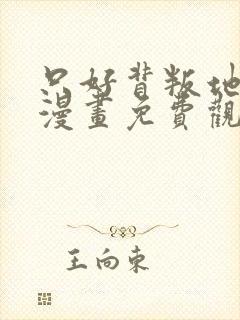 只好背叛地
漫畫免費觀
王向東